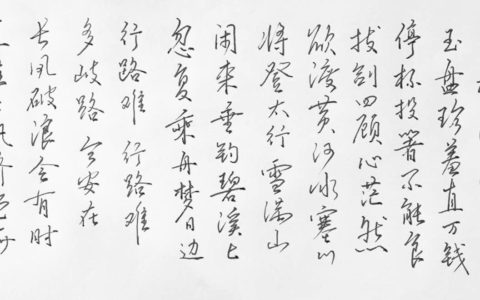 玉盘珍羞直万钱
停杯投箸不能食
拔剑四顾心茫然
欲渡黄河冰塞川
将登太行雪满山
闲来垂钓碧溪上
忽复乘舟梦日边
行路难 行路难
多歧路 今安在
长风破浪会有时